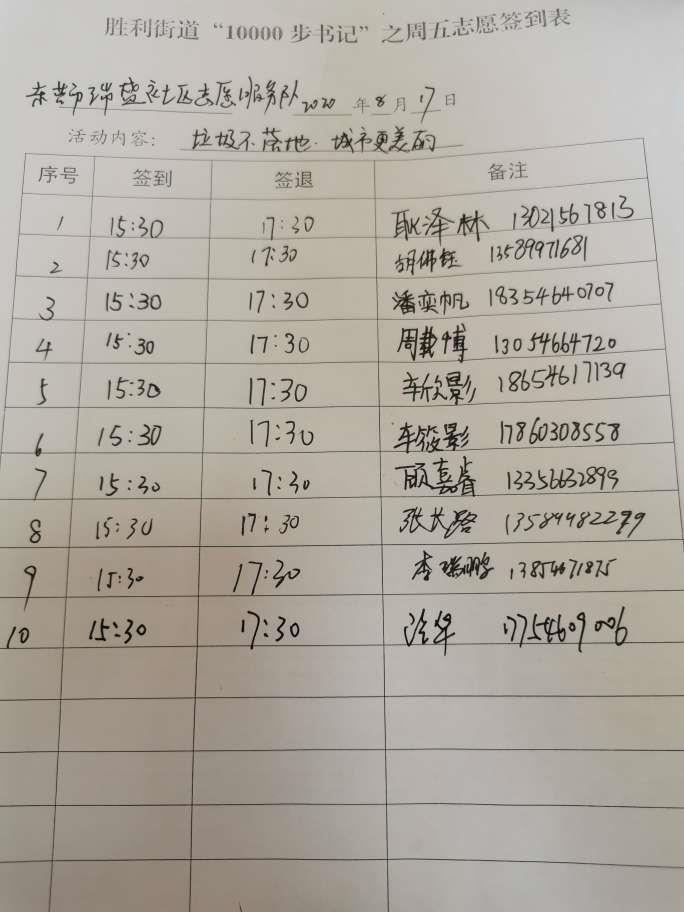 胜利街道“10000步书记”之周五志愿签到表
东营市瑞盛社区志愿服务队 2020年8月17日
活动内容：垃圾不落地·城市更美丽
序号 签到 签退 备注
1 15:30 17:30 耿泽林 13021567813
2 15:30 17:30 胡佛钰 13589971681
3 15:30 17:30 潘奕帆 18354640707
4 15:30 17:30 周博 13054664720
5 15:30 17:30 车欣影 18654617139
6 15:30 17:30 车筱影 17860308558
7 15:30 17:30 顾嘉睿 13356632899
8 15:30 17:30 张长路 13589482299
9 15:30 17:30 李瑞鹏 13854671875
10 15:30 17:30 17754609006